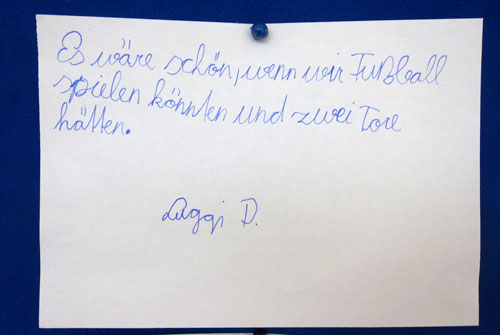 Es wäre schön, wenn wir Fußball
spielen könnten und zwei Tore
hätten.
Luggi D.